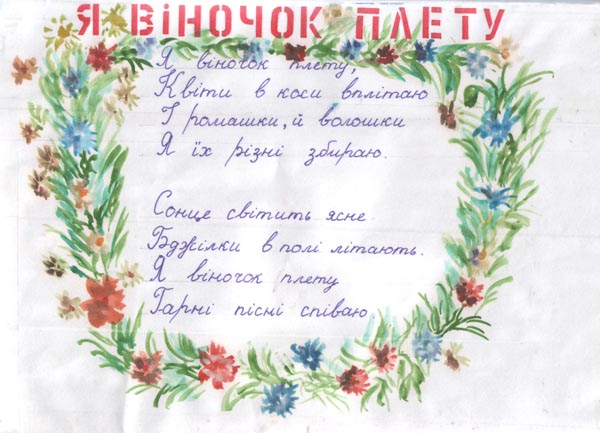 Я ВІНОЧОК ПЛЕТУ
Я віночок плету,
Квіти в коси вплітаю
І ромашки, й волошки
Я їх різні збираю.
Сонце світить ясне
Бджілки в полі літають.
Я віночок плету
Гарні пісні співаю.